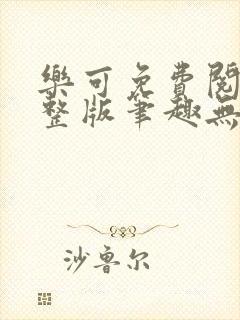 樂可免費閱
整版筆趣無
沙鲁尔